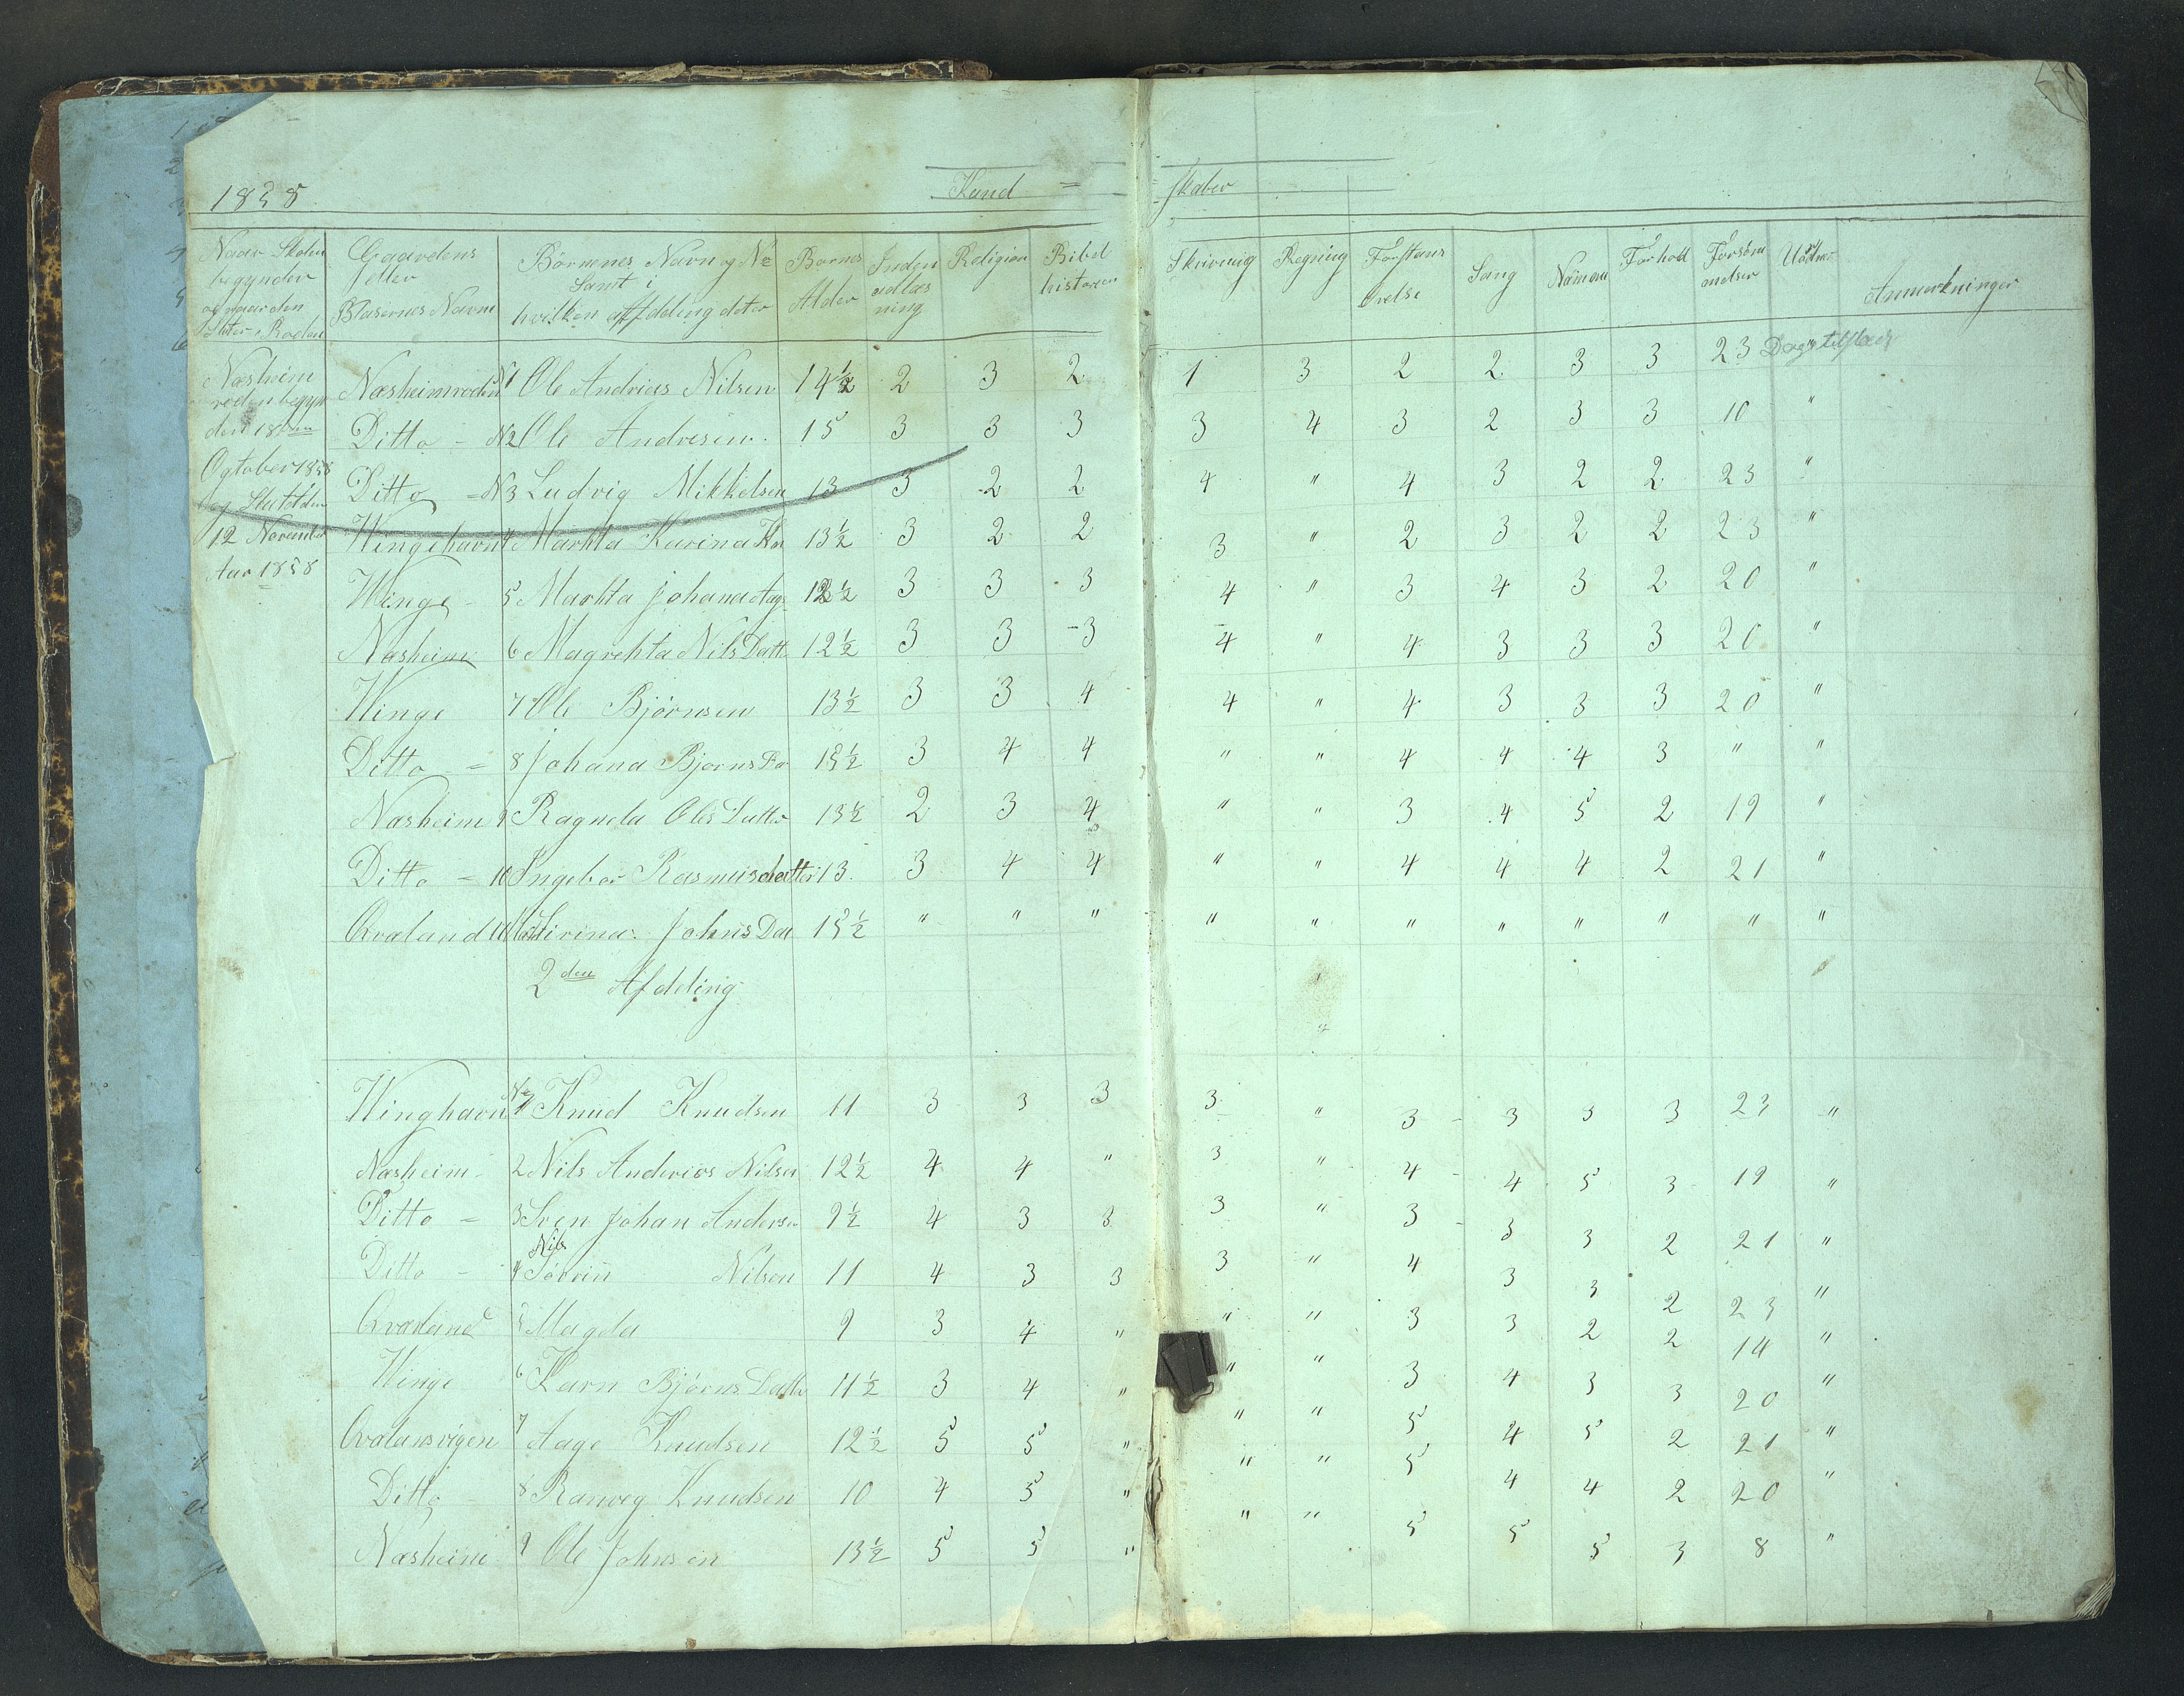 1858
Kund = = skaber
Naar Skolen begynder og naar den Slutter i Roden
Gaardens eller Pladsernes Navne
Børnenes Navn og No Samt i hvilken Afdeling de ere
Barnes Alder
Inden adlæs ning
Religion
Bibel historien
Skrivnig
Regning
Forstans øvelse
Sang
Forhold
Forsøm melser
Anmerkninger
Næsheim roden begyn den 18de Ogtober 1858 og Slutet den 12 November Aar 1858
Næsheimroden N1 Ole Andrias Nilsen 14½ 2 3 2 1 3 2 2 3 3 23 "
Ditto - N2 Ole Andresen. 15 3 3 3 3 4 3 2 3 3 10 "
Ditto = N3 Ludvig Mikkelsen 13 3 2 2 4 " 4 3 2 2 23 "
Wingehavn 4 Markta Karina 13½ 3 2 2 3 " 2 3 2 2 23 "
Winge - 5 Markta Johana Aag 12½ 3 3 3 4 " 3 4 3 2 20 "
Næsheim 6 Magrehta Nils Datt 12½ 3 3 3 4 " 4 3 3 3 20 "
Winge 7 Ole Bjørnsen 13½ 3 3 4 4 " 4 3 3 3 20 "
Ditto = 8 Johana Bjørns Da 13½ 3 4 4 " " 4 4 4 3 " "
Næsheim 9 Ragnela Oles Datter 13½ 2 3 4 " " 3 4 5 2 19 "
Ditto = 10 Ingebor Rasmusdatter 13. 3 4 4 " " 4 4 4 2 21 "
Qvaland 11 Sirina Johns Dat 13½ " " " " " " " " " " "
2den Afdeling
Winghavn No 1 Knud Knudsen 11 3 3 3 3 " 3 3 3 3 23 "
Næsheim 2 Nils Anderias Nilsen 12½ 4 4 " 3 " 4 4 5 3 19 "
Ditto = 3 Sven Johan Andersen 9½ 4 3 3 3 " 3 3 3 2 21 "
Ditto - 4 Nils Søvrin Nilsen 11 4 3 3 3 " 4 3 3 2 23 "
Qvaland 5 Magela 9 3 4 " " " 3 3 2 2 14 "
Winge 6 Karn Bjørns Datter 11½ 3 4 " " " 3 4 3 3 20 "
Qvalansvigen 7 Aage Knudsen 12½ 5 5 " " " 5 4 5 2 21 "
Ditto 8 Ranveg Knudsen 10 4 5 " " " 5 4 4 2 20 "
Næsheim 9 Ole Johnsen 13½ 5 5 " " " 5 5 5 3 8 "